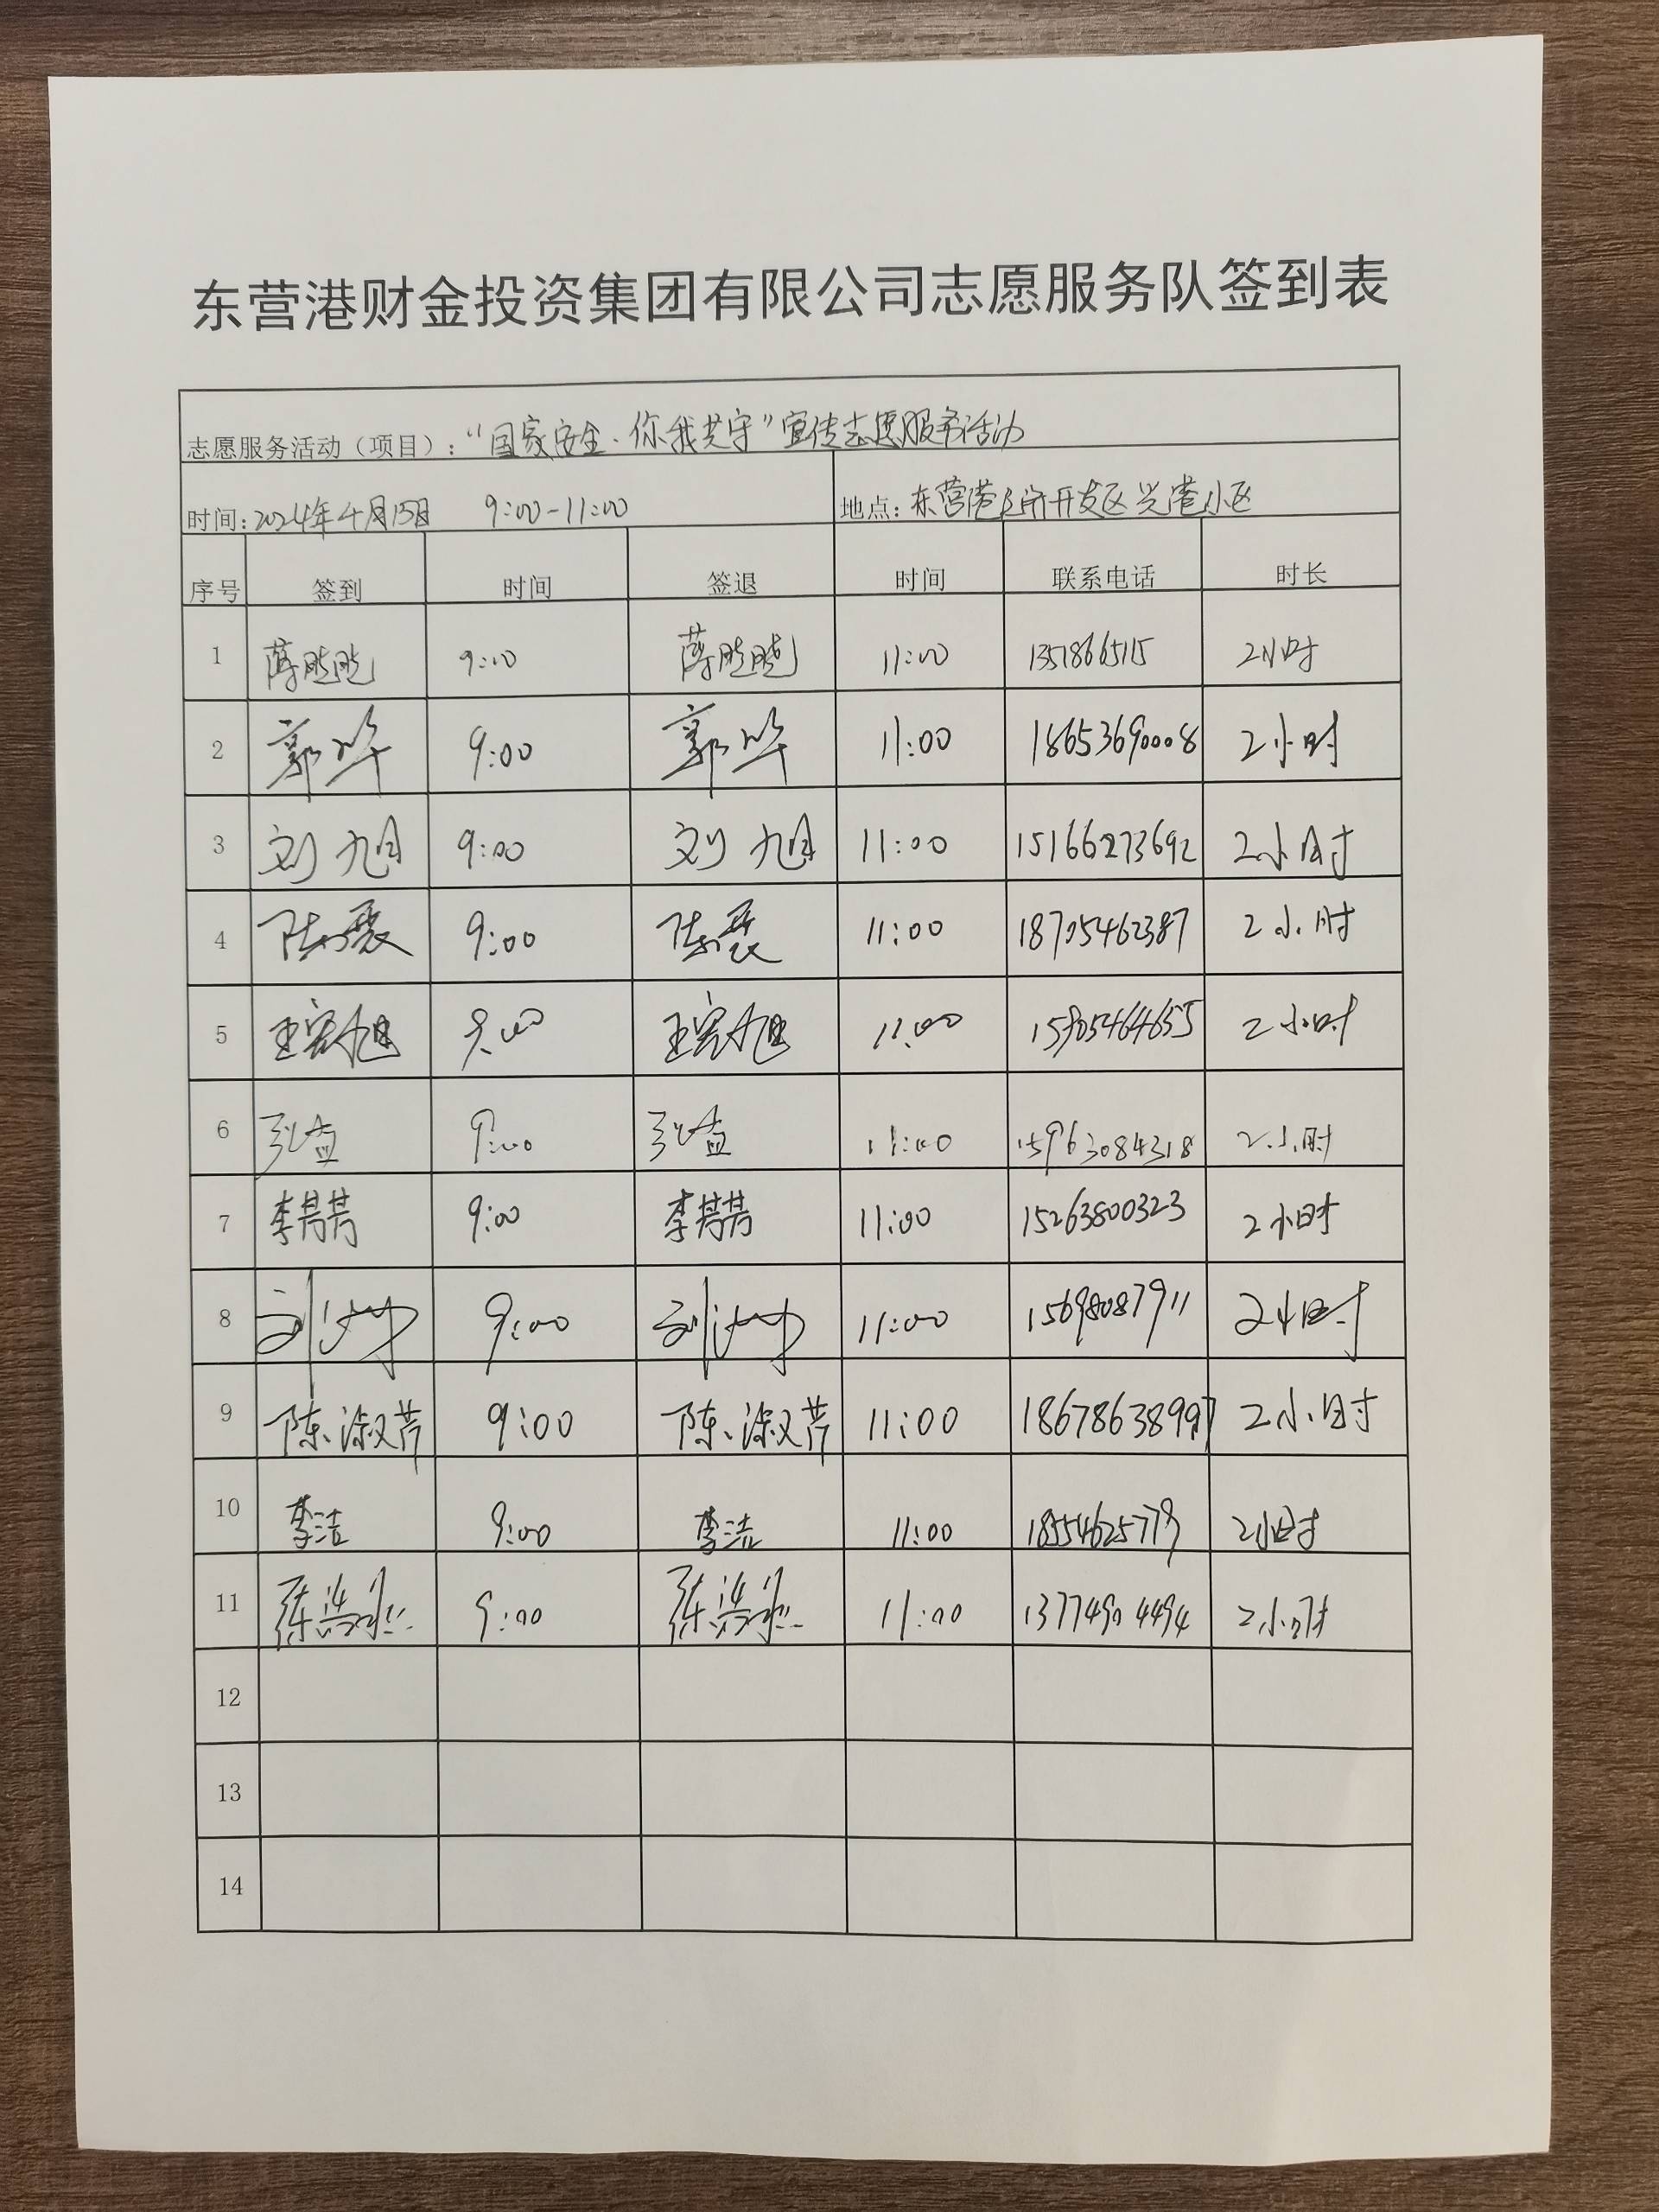 东营港财金投资集团有限公司志愿服务队签到表
志愿服务活动（项目）：“国家安全·你我共守”宣传志愿服务活动
时间：2024年4月15日 9:00-11:00 地点：东营港经济开发区兴港小区
序号 签到 时间 签退 时间 联系电话 时长
1 薄 9:00 薄 11:00 13518665115 2小时
2 郭晔 9:00 郭晔 11:00 18653690008 2小时
3 刘旭 9:00 刘旭 11:00 15166273692 2小时
4 陈 9:00 陈 11:00 18705462387 2小时
5 王宾旭 9:00 王宾旭 11:00 15905464655 2小时
6 张 9:00 张 11:00 15963084318 2小时
7 李 9:00 李 11:00 15263800323 2小时
8 刘 9:00 刘 11:00 15698087911 2小时
9 陈淑芹 9:00 陈淑芹 11:00 18678638997 2小时
10 李洁 9:00 李洁 11:00 18554625779 2小时
11 张浩 9:00 张浩 11:00 13774904494 2小时
12
13
14